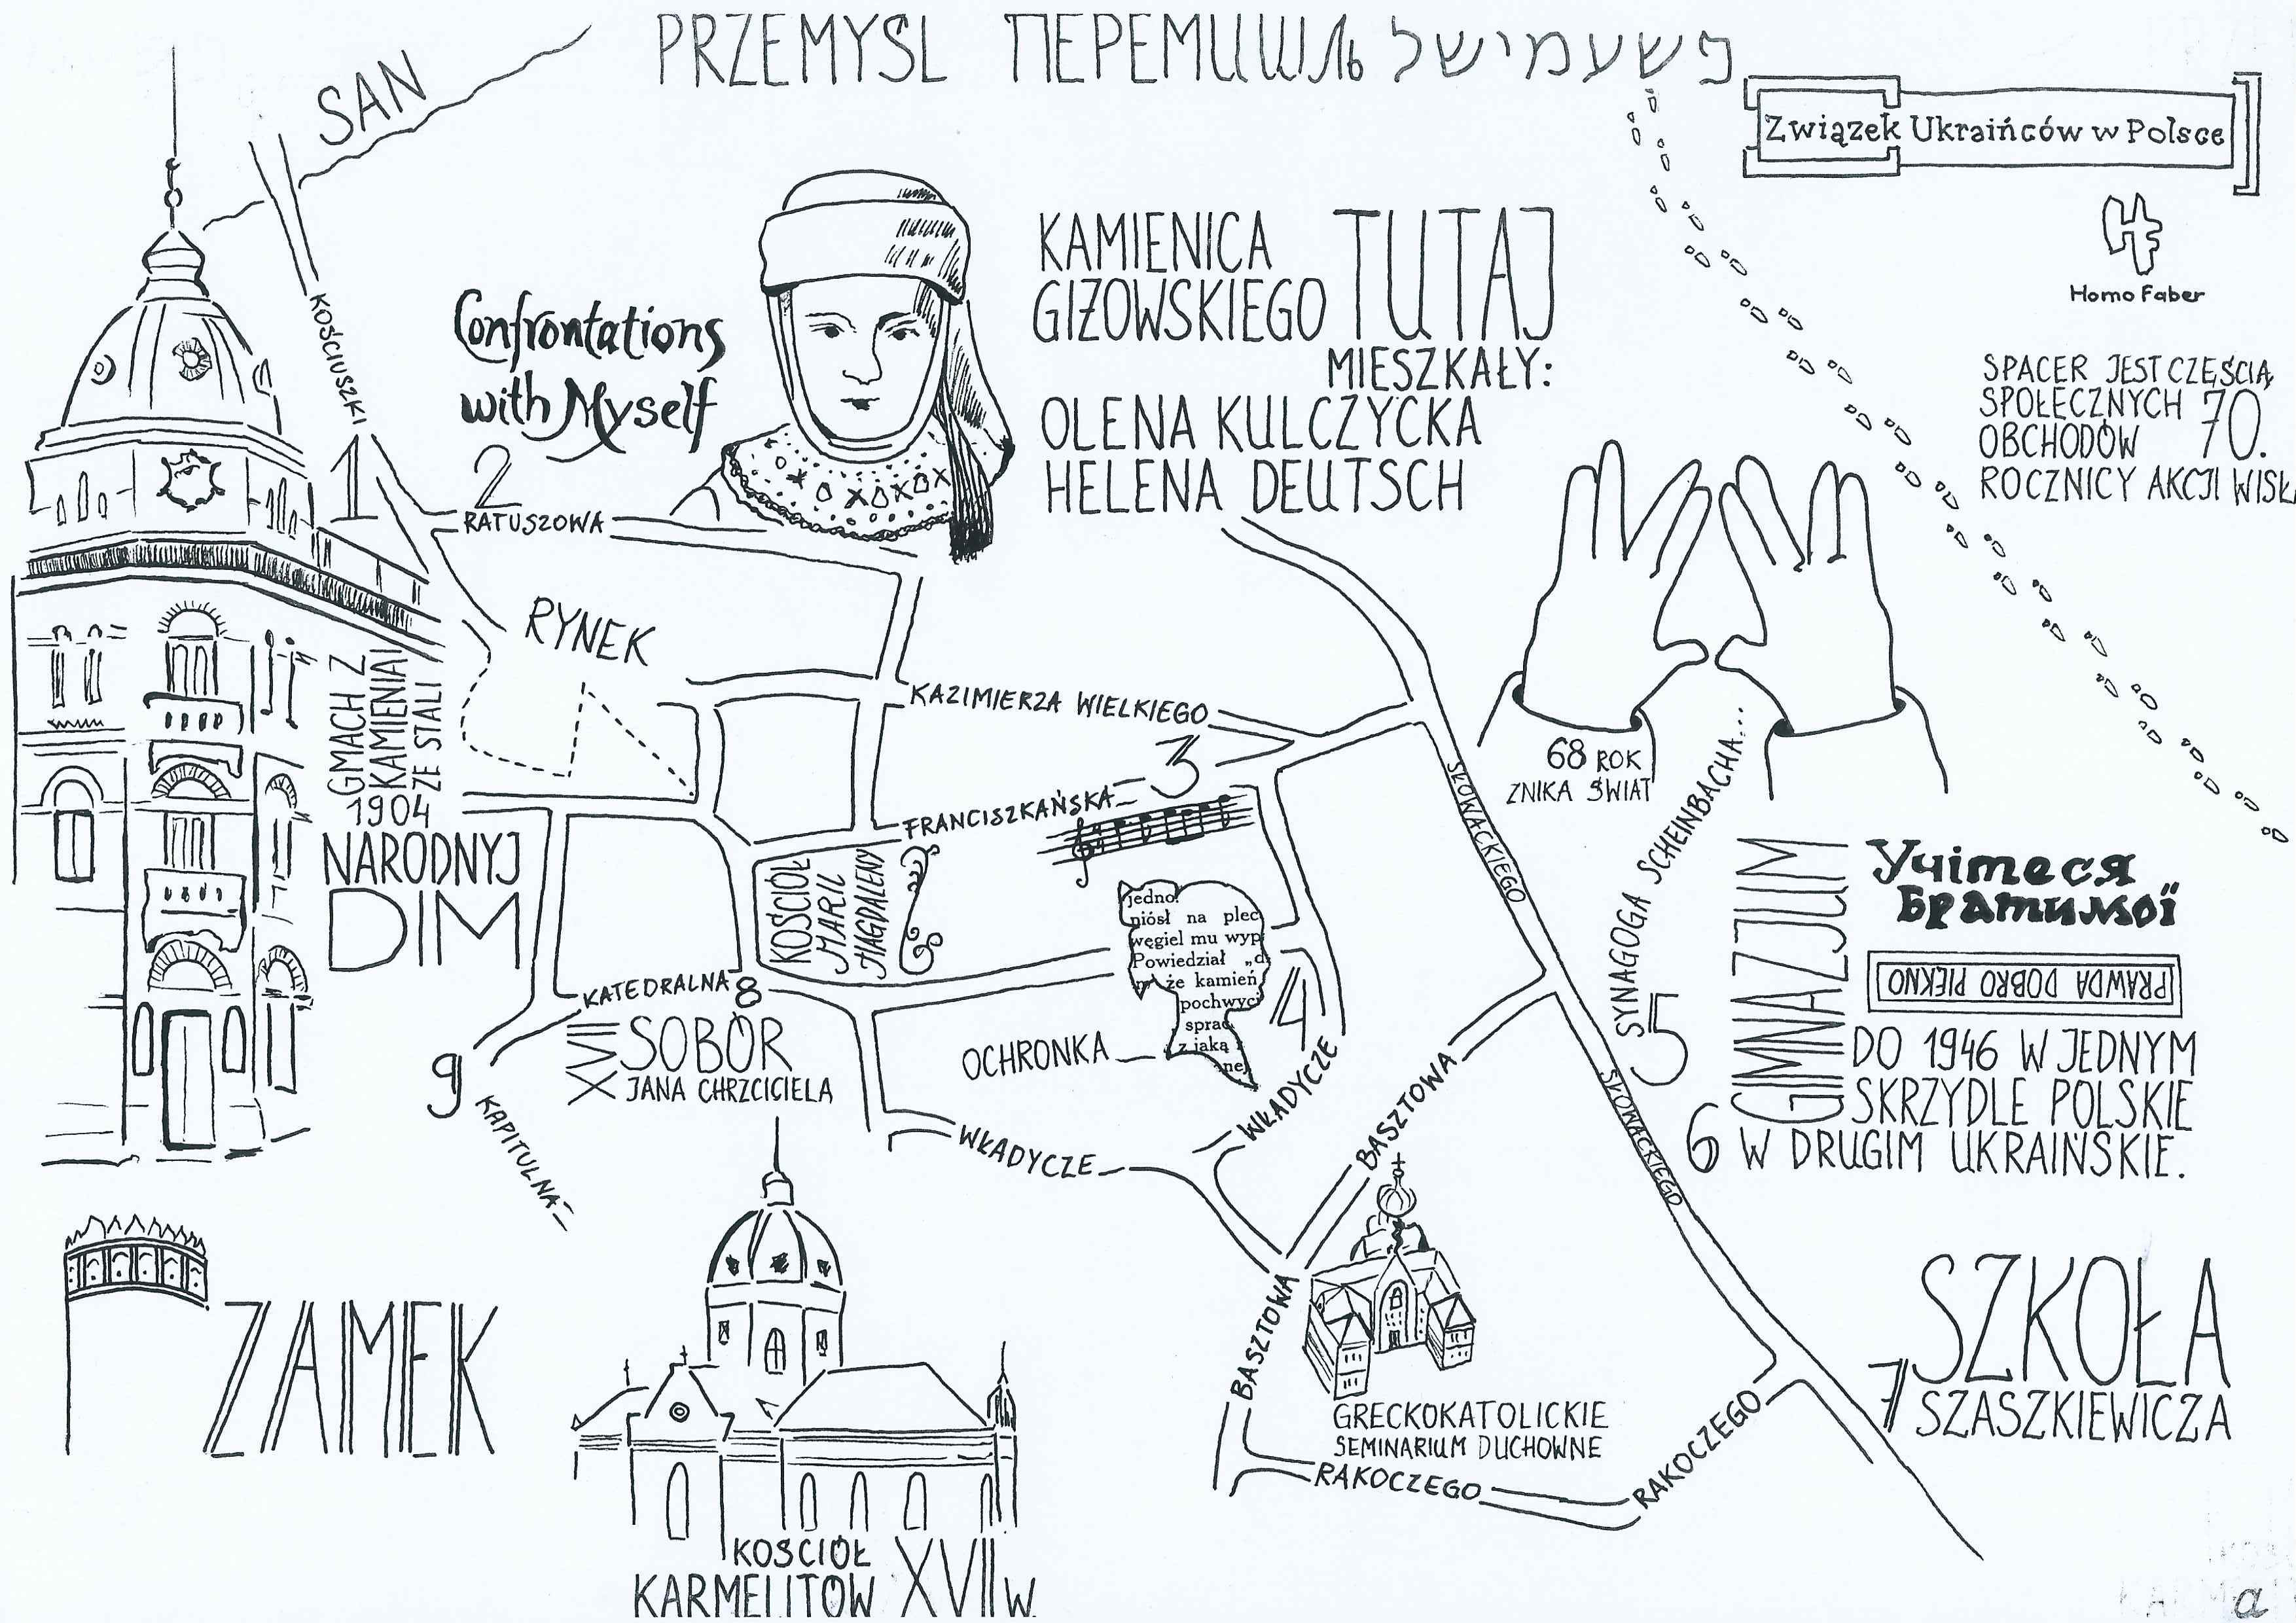 PRZEMYSL ПЕРЕМИШЛЬ פשעמישל
SAN
Związek Ukraińców w Polsce
Homo Faber
SPACER JEST CZĘŚCIĄ
SPOŁECZNYCH 70.
OBCHODÓW
ROCZNICY AKCJI
KOŚCIUSZKI
Confrontations
with Myself
KAMIENICA
GIZOWSKIEGO
TUTAJ
MIESZKAŁY:
OLENA KULCZYCKA
HELENA DEUTSCH
1
2
RATUSZOWA
RYNEK
KAZIMIERZA WIELKIEGO
3
FRANCISZKAŃSKA
GMACH Z
KAMIENIA I
ZE STALI
1904
NARODNYJ
DIM
KOŚCIÓŁ
MARII
MAGDALENY
jedno
niósł na plec
węgiel mu wyp
Powiedział „d
że kamień
pochwyci
sprac
z jaką
nej
OCHRONKA
4
WŁADYCZE
SŁOWACKIEGO
68 ROK
ZNIKA ŚWIAT
SYNAGOGA SCHEINBACHA...
5
GIMNAZJUM
Учітеся
Брати мої
PRAWDA DOBRO PIĘKNO
DO 1946 W JEDNYM
SKRZYDLE POLSKIE
6 W DRUGIM UKRAIŃSKIE.
SŁOWACKIEGO
KATEDRALNA 8
XVII SOBÓR
JANA CHRZCICIELA
9
KAPITULNA
WŁADYCZE
BASZTOWA
BASZTOWA
ZAMEK
KOSCIÓŁ
KARMELITÓW XVII W.
GRECKOKATOLICKIE
SEMINARIUM DUCHOWNE
RAKOCZEGO
RAKOCZEGO
7 SZKOŁA
SZASZKIEWICZA
a